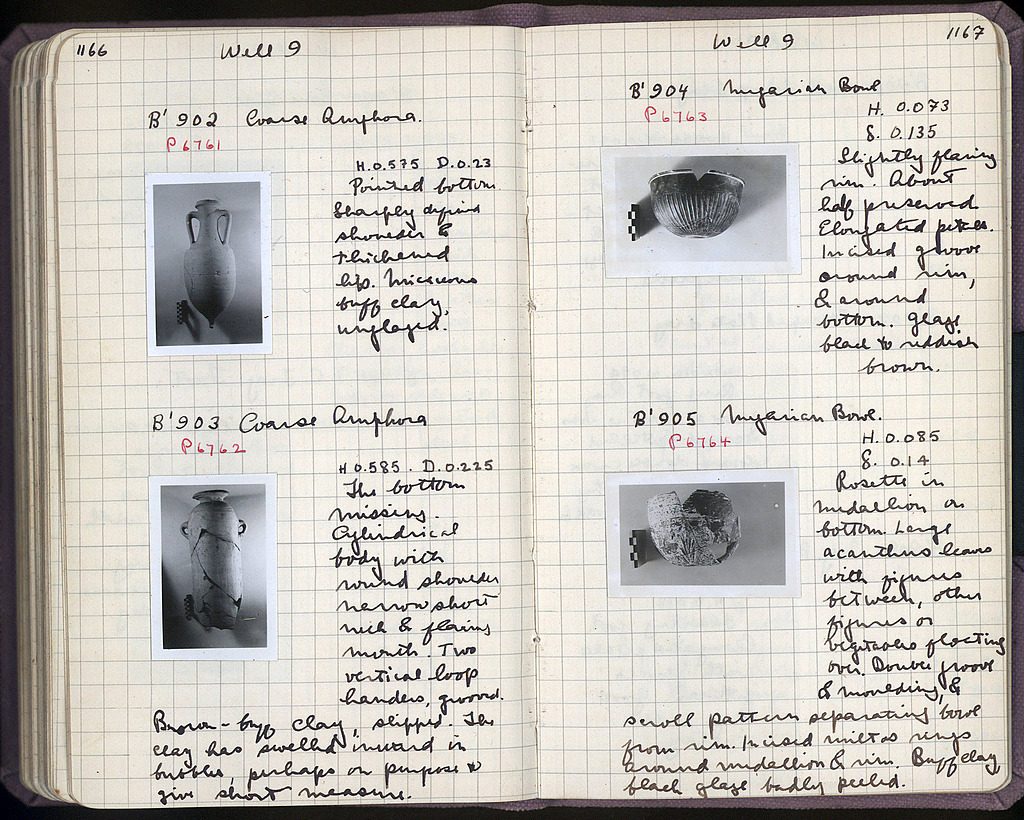 1166
Well 9
B' 902 Coarse Amphora.
P 6761
H.0.575 D.0.23
Pointed bottom
Sharply defined
shoulder &
thickened
lip. Micaceous
buff clay,
unglazed.
B' 903 Coarse Amphora
P 6762
H 0.585. D.0.225
The bottom
missing.
Cylindrical
body with
round shoulder
narrow short
neck & flaring
mouth. Two
vertical loop
handles, grooved.
Brown-buff clay, slipped. The
clay has swelled inward in
bubbles, perhaps on purpose to
give short measure.
Well 9
1167
B' 904 Megarian Bowl
P 6763
H. 0.073
δ. 0.135
Slightly flaring
rim. About
half preserved
Elongated petals.
Incised groove
around rim,
& around
bottom. Glaze
black to reddish
brown.
B' 905 Megarian Bowl.
P 6764
H. 0.085
δ. 0.14
Rosette in
medallion on
bottom. Large
acanthus leaves
with figures
between, other
figures or
floating
over. Double groove
& moulding, &
scroll pattern separating bowl
from rim. Incised miltos rings
around medallion & rim. Buff clay
black glaze badly peeled.